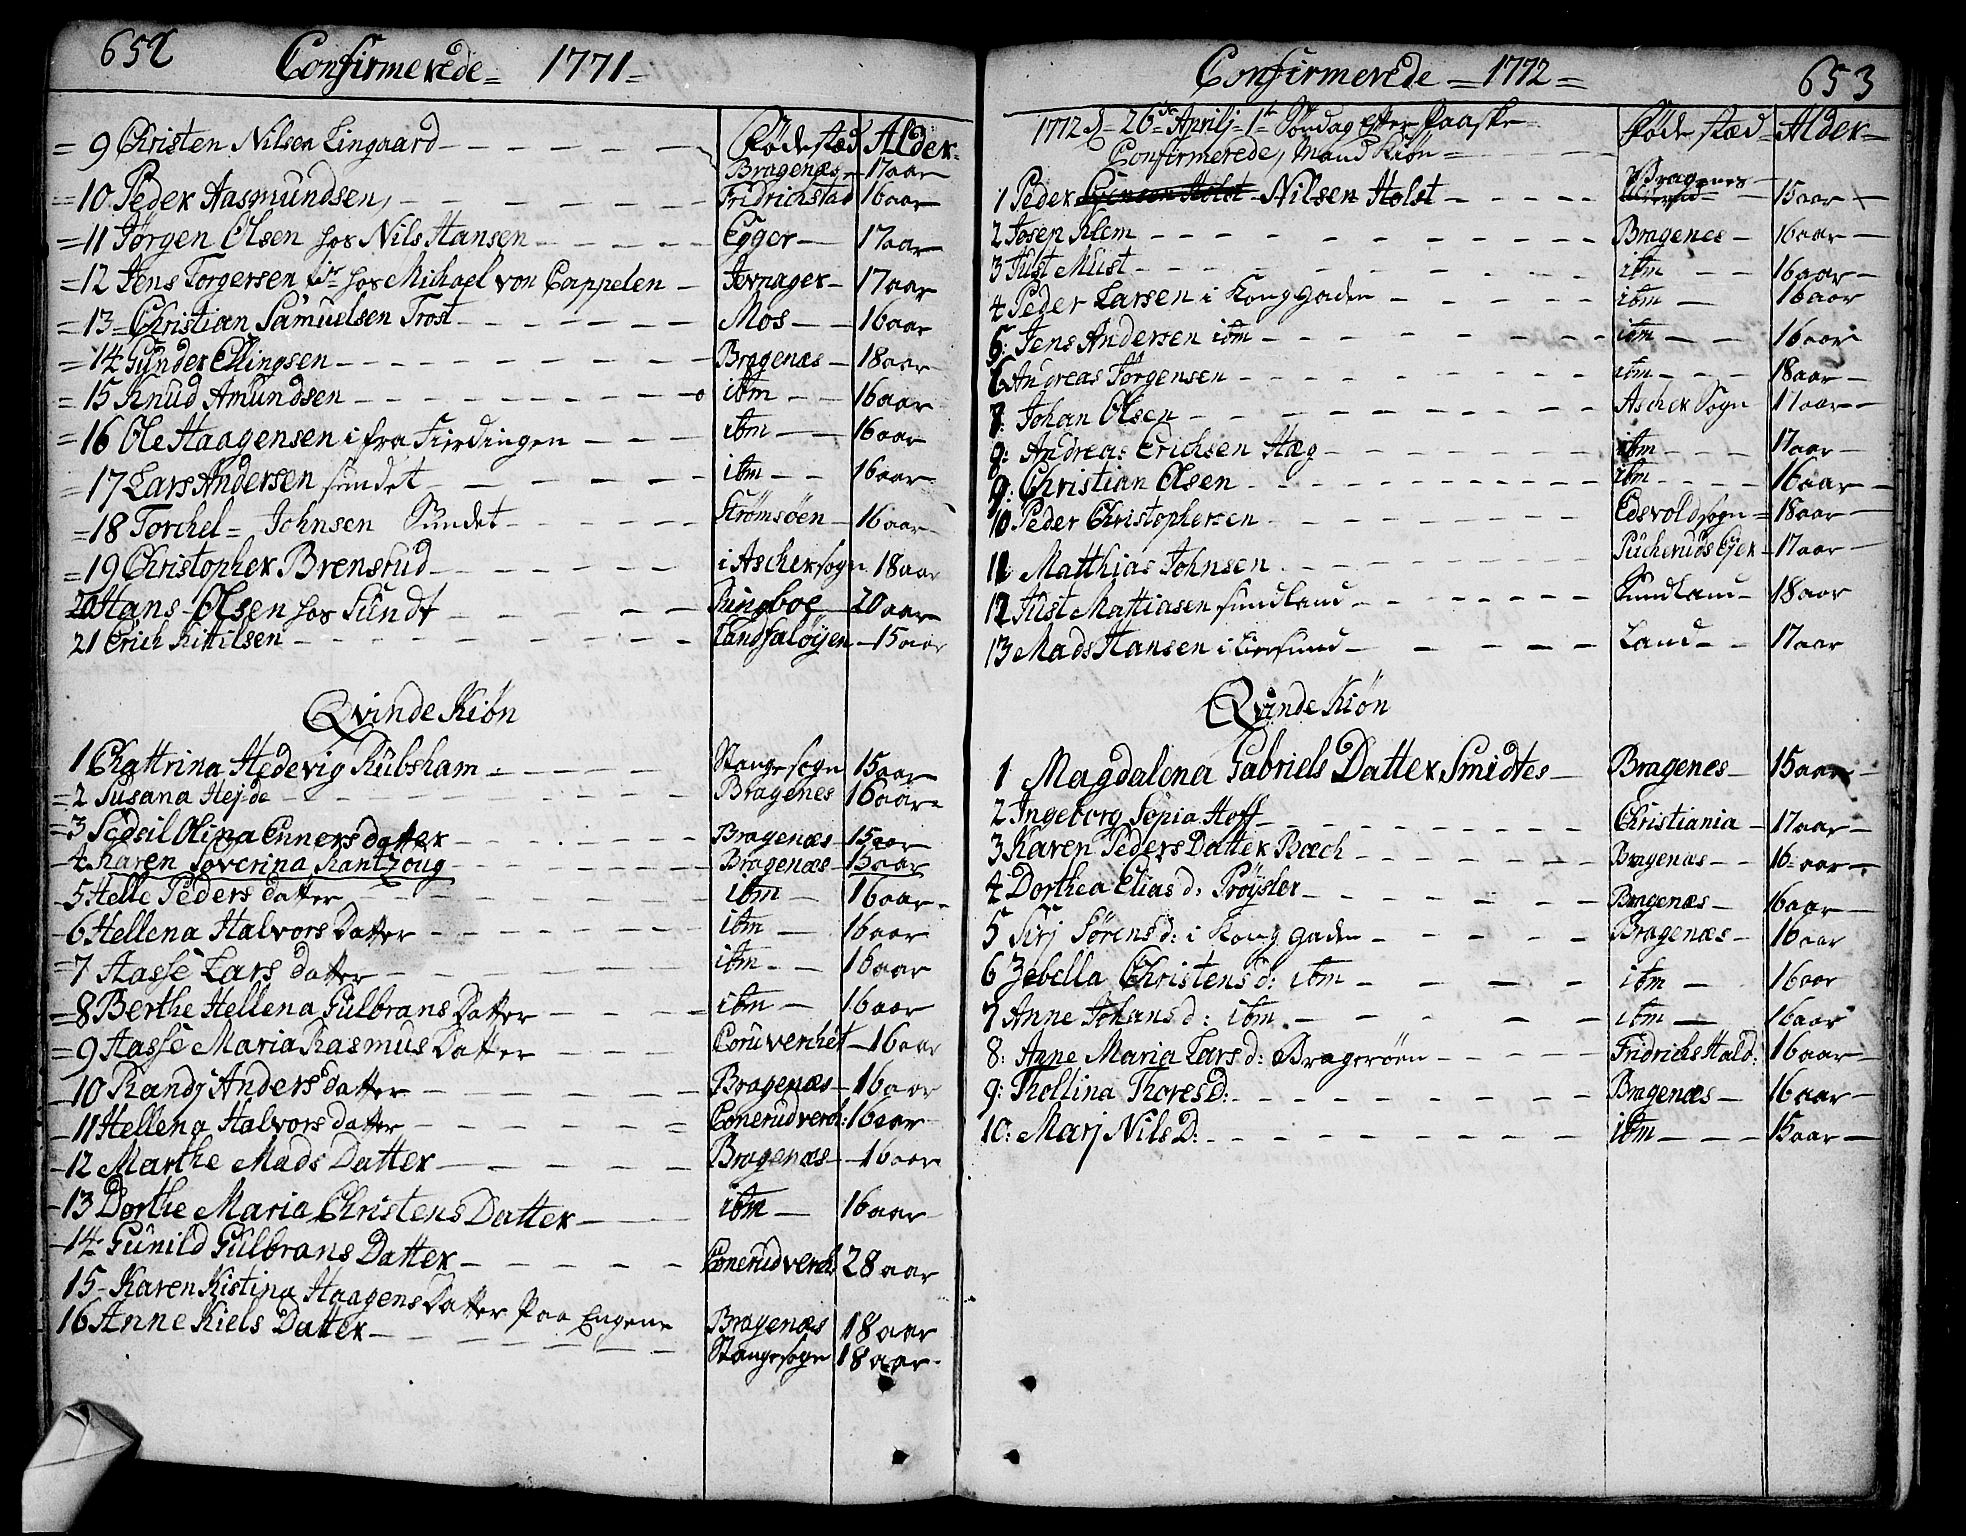 652 Confirmerede = 1771 =
Fødestæd Alder
= 9 Christen Nilsen Lingaard Bragenæs 17 aar
= 10 Peder Aasmundsen, Fridrichstad 16 aar
= 11 Jørgen Olsen hos Nils Hansen Egger 17 aar
= 12 Jens Torgersen hos Michael von Cappelen Jevnager 17 aar
= 13 Christian Samuelsen Trost Mos 16 aar
= 14 Gunder Ellingsen Bragenæs 18 aar
= 15 Knud Amundsen ibm 16 aar
= 16 Ole Haagensen i fra Fierdingen ibm 16 aar
= 17 Lars Andersen sundet ibm 16 aar
= 18 Torchel = Johnsen Sundet Strømsøen 16 aar
= 19 Christopher Brensrud i Ascher sogn 18 aar
20 Hans Olsen hos Fundt Ringboe 20 aar
21 Erich Kittilsen Landfaløyen 15 aar
Qvinde Kiøn
1 Chattrina Hedevig Rübsham Stange sogn 15 aar
= 2 Susana Hejde Bragenes 16 aar
= 3 Sedsil Olina Enners datter Bragenæs 15 aar
4 Karen Soverina Rantzoug Bragenæs 15 aar
5 Helle Peders datter ibm 16 aar
6 Hellena Halvors Datter ibm 16 aar
= 7 Aasse Lars datter ibm 16 aar
= 8 Berthe Hellena Gulbrans Datter ibm 16 aar
= 9 Aasse Maria Rasmus Datter 16 aar
10 Randj Anders datter Bragenæs 16 aar
11 Hellena Halvors datter Conerudverch: 16 aar
12 Marthe Mads Datter Bragenæs 16 aar
13 Dorthe Maria Christens Datter ibm 16 aar
14 Gunild Gulbrans Datter Conerudverch 28 aar
15 Karen Kistina Haagens Datter Paa Engene Bragenæs 18 aar
16 Anne Kiels Datter Stange sogn 18 aar
Confirmerede = 1772 = 653
1772 d = 26de Aprilj = 1te Søndag efter Paaske Fødestæd Alder
Confirmerede, Mand Kiøn
1 Peder Nilsen Holst Bragenes 15 aar
2 Josep Klem Bragenes 16 aar
3 Just Must ibm 16 aar
4 Peder Larsen i Konggaden ibm 16 aar
5: Jens Andersen ibm ibm 16 aar
6 Andreas Jørgensen ibm 18 aar
8: Johan Olsen Ascher Sogn 17 aar
8: Andreas Erichsen Hæg ibm 17 aar
9: Christian Olsen ibm 16 aar
10 Peder Christophersen Edsvold sogn 18 aar
11 Matthias Johnsen Pucheruds Ejer 17 aar
12 Just Mattiasen sundland Sundland 18 aar
13 Mads Hansen i Liersund Land 17 aar
Qvinde Kiøn
1 Magdalena Gabriels Datter Smidtes Bragenes 15 aar
2 Ingeborg Sopia Hoff Christiania 17 aar
3 Karen Peders Datter Bæch Bragenæs 16 aar
4 Dorthea Elias d: Prøysler Bragenæs 16 aar
5 Sirj Sørens d: i Konggaden Bragenæs 16 aar
6 Zebella Christens d: ibm ibm 16 aar
7 Anne Johans d: ibm ibm 16 aar
8: Anne Maria Lars d: Bragerøen Fridrichs Hald: 16 aar
9: Thollina Thores D: Bragenæs 16 aar
10: Marj Nils D: ibm 15 aar